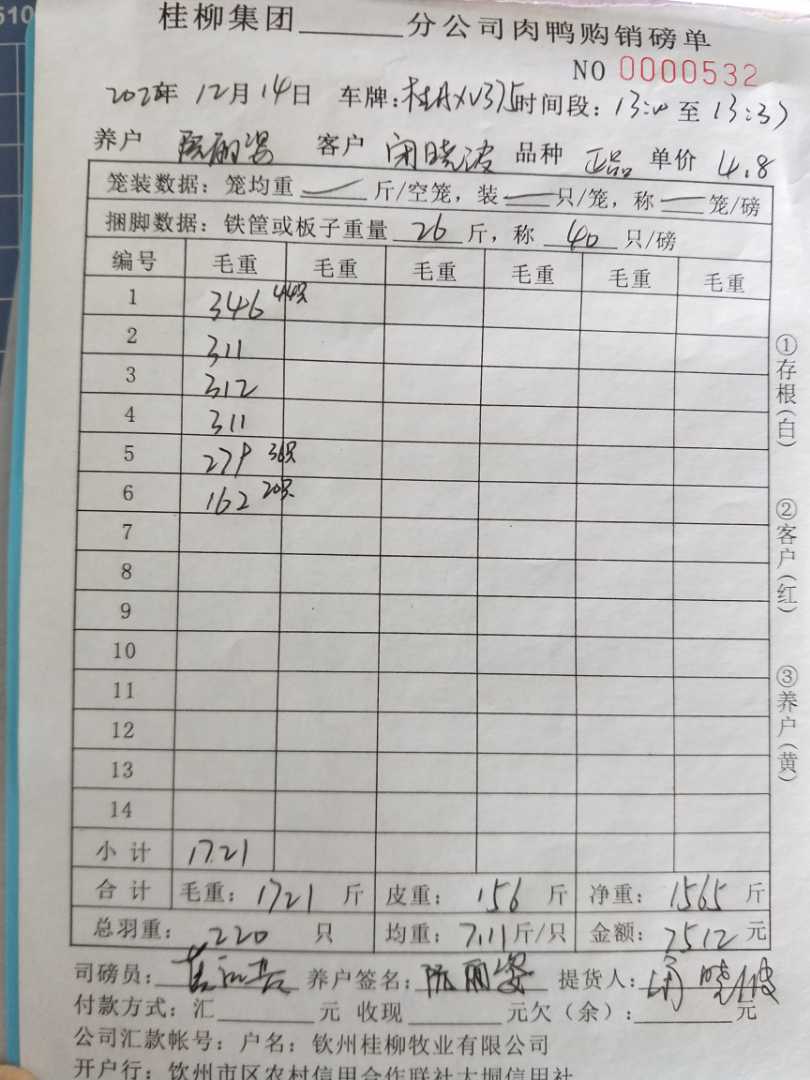 510
桂柳集团______分公司肉鸭购销磅单
NO 0000532
年 12月14日 车牌：桂AXV375 时间段：13:00 至 13:37
养户 陈丽姿 客户 闭晓波 品种 正品 单价 4.8
笼装数据：笼均重 — 斤/空笼，装 — 只/笼，称 — 笼/磅
捆脚数据：铁筐或板子重量 26 斤，称 40 只/磅
编号 毛重 毛重 毛重 毛重 毛重 毛重
1 346 44只
2 311
3 312
4 311
5 279 36只
6 162 20只
7
8
9
10
11
12
13
14
小计 1721
合计 毛重：1721 斤 皮重：156 斤 净重：1565 斤
总羽重：220 只 均重：7.11 斤/只 金额：7512 元
司磅员： 养户签名：陈丽姿 提货人：闭晓波
付款方式：汇______元 收现______元欠（余）：______元
公司汇款帐号：户名：钦州桂柳牧业有限公司
开户行：钦州市区农村信用合作联社大垌信用社
①存根（白）
②客户（红）
③养户（黄）